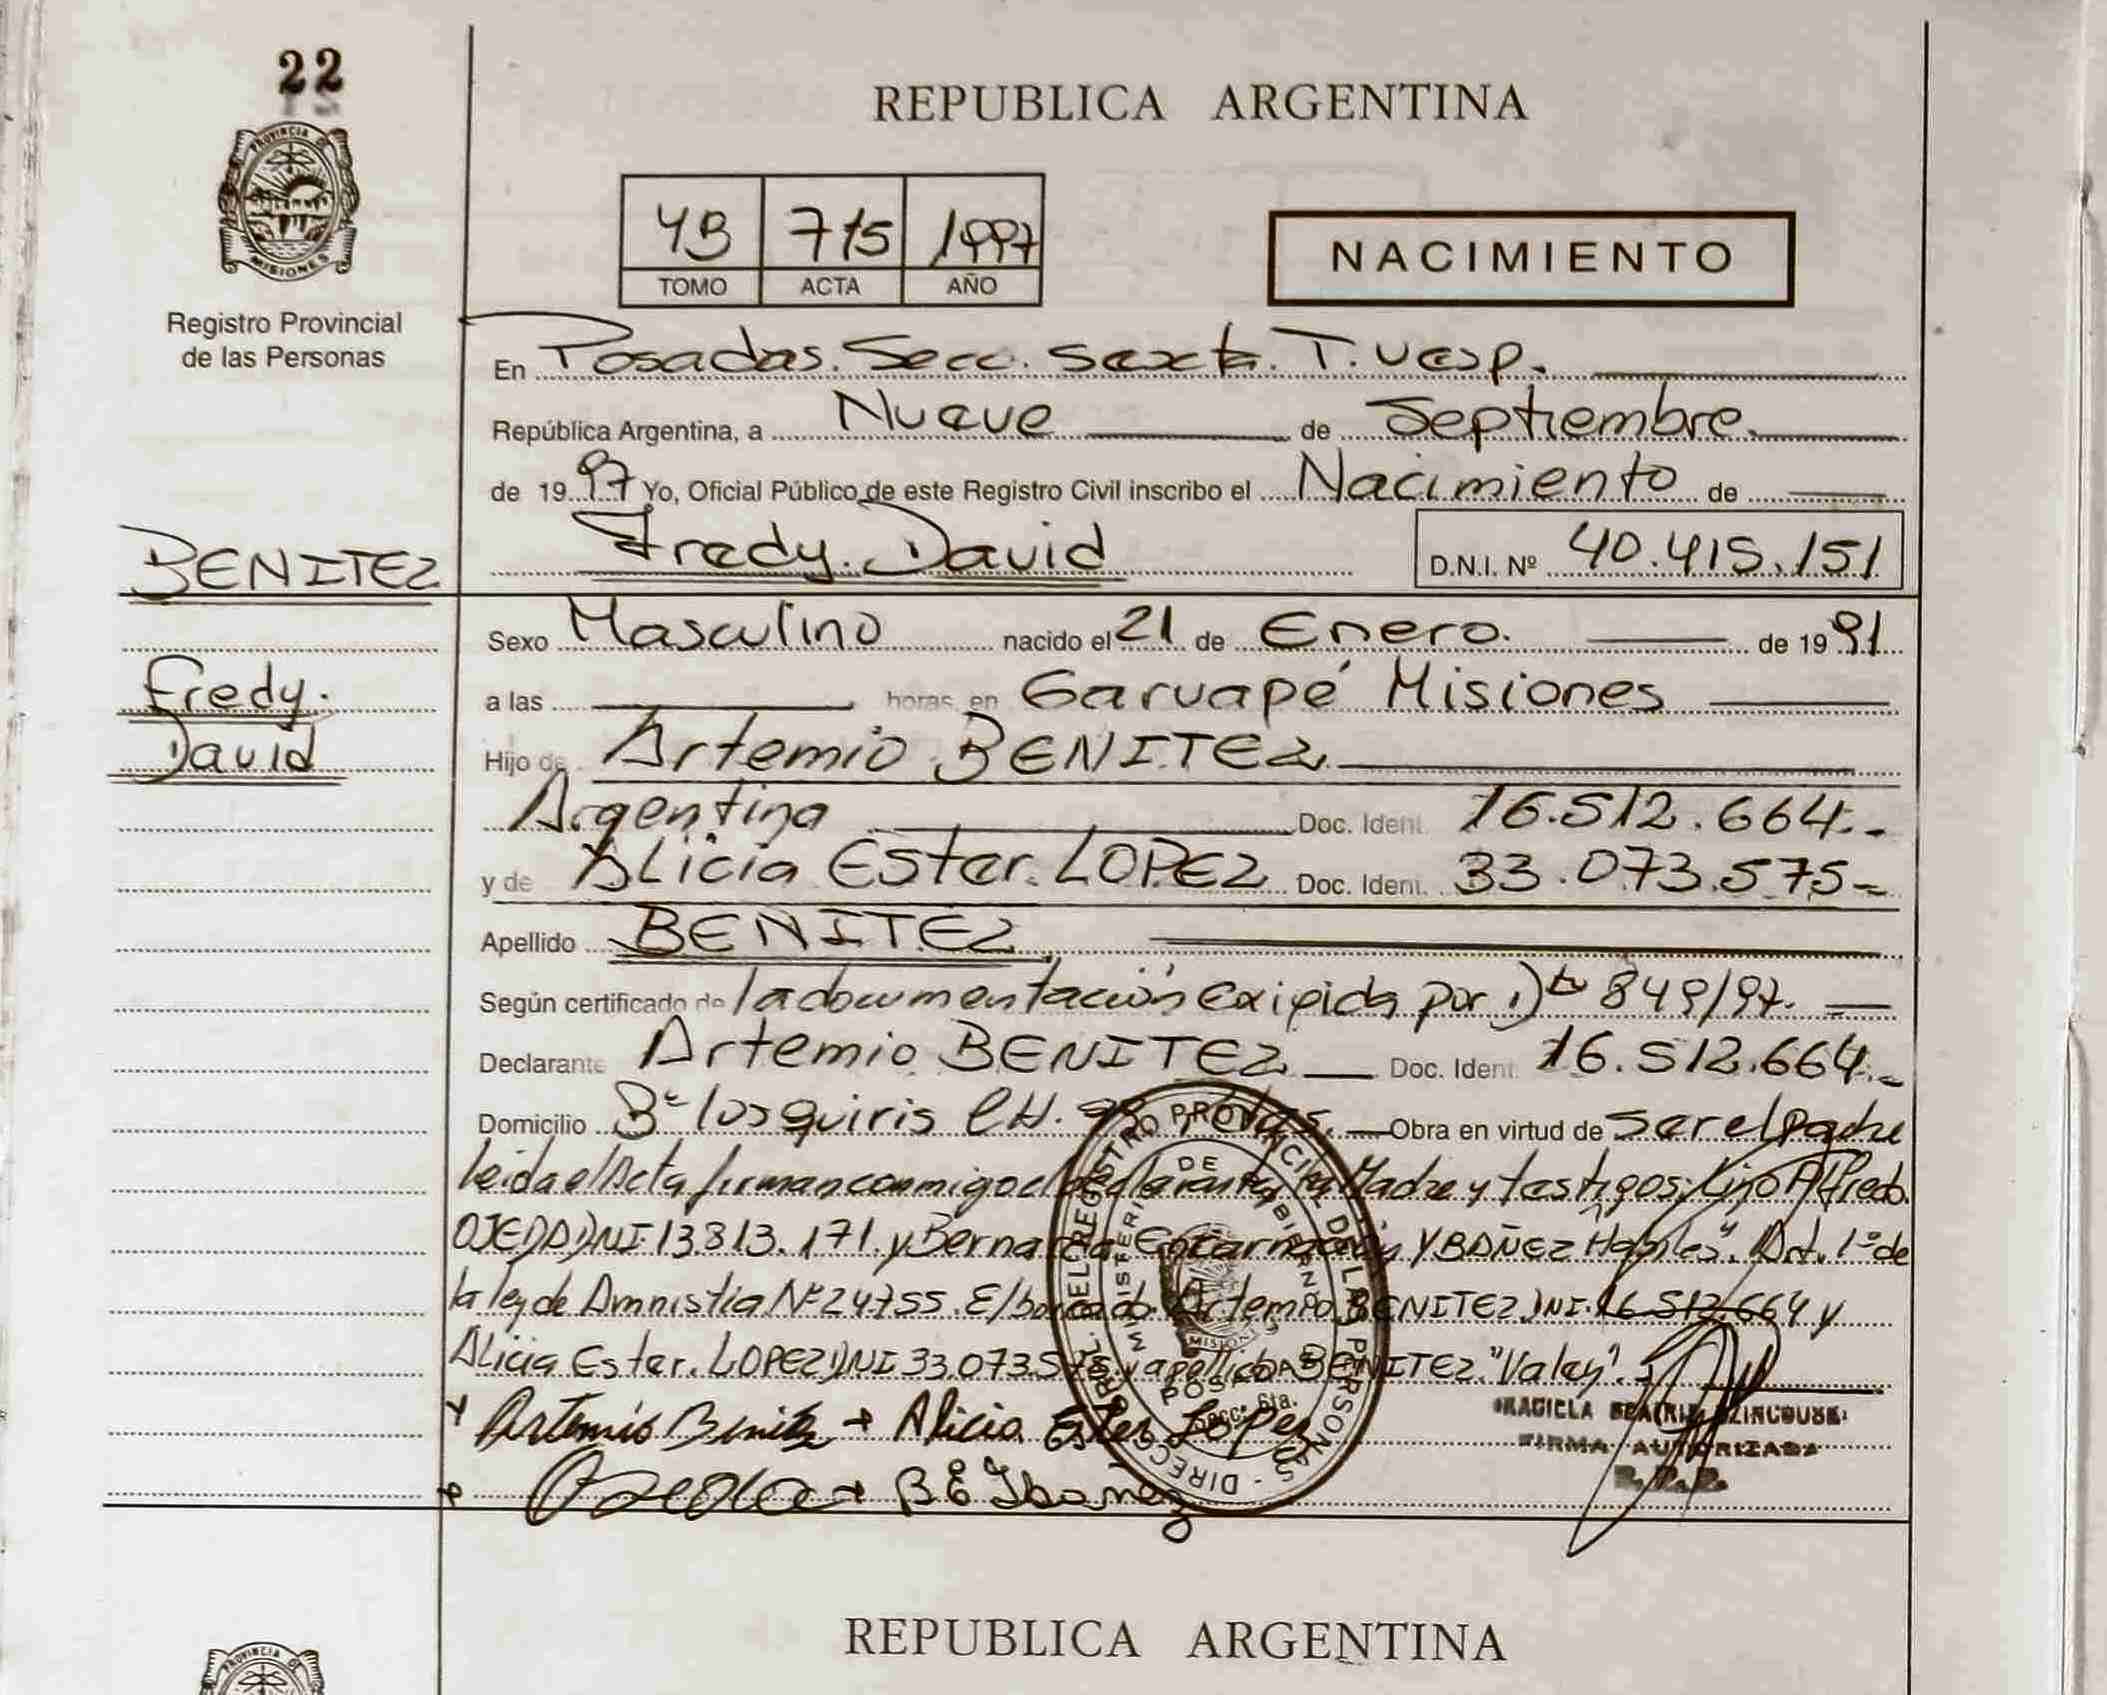 22
REPUBLICA ARGENTINA
PROVINCIA DE
MISIONES
Registro Provincial
de las Personas
4B 715 1997
TOMO ACTA AÑO
NACIMIENTO
En Posadas. Secc. sexta. T. vesp.
República Argentina, a Nueve de Septiembre.
de 1997 Yo, Oficial Público de este Registro Civil inscribo el Nacimiento de
Fredy. David D.N.I. Nº 40.415.151
BENITEZ
Fredy.
David
Sexo Masculino nacido el 21 de Enero. de 1991
a las horas en Garuapé Misiones
Hijo de Artemio BENITEZ
Argentina Doc. Ident. 16.512.664.-
y de Alicia Ester. LOPEZ Doc. Ident. 33.073.575-
Apellido BENITEZ
Según certificado de la documentación exigida por Dto 849/97.
Declarante Artemio BENITEZ Doc. Ident. 16.512.664.-
Domicilio Bº los quiris Obra en virtud de ser el Padre
leida el Acta firman conmigo el declarante, la Madre y testigos: Lino Alfredo
OJEDA DNI 13.813.171. y Bernarda Encarnación YBAÑEZ "Hábiles". Art. 1º de
la ley de Amnistia Nº 24755. E/borrado. Artemio BENITEZ DNI. 16.512.664 y
Alicia Ester. LOPEZ DNI 33.073.575 y apellido BENITEZ. "Valen".
Artemio Benitez + Alicia Ester Lopez
Ojeda + B E Ibañez
FIRMA AUTORIZADA
R.P.P.
DIRECC. GRAL. DEL REGISTRO PROVINCIAL DE LAS PERSONAS
MINISTERIO DE GOBIERNO
MISIONES
POSADAS
Secc. 6ta.
REPUBLICA ARGENTINA
PROVINCIA DE